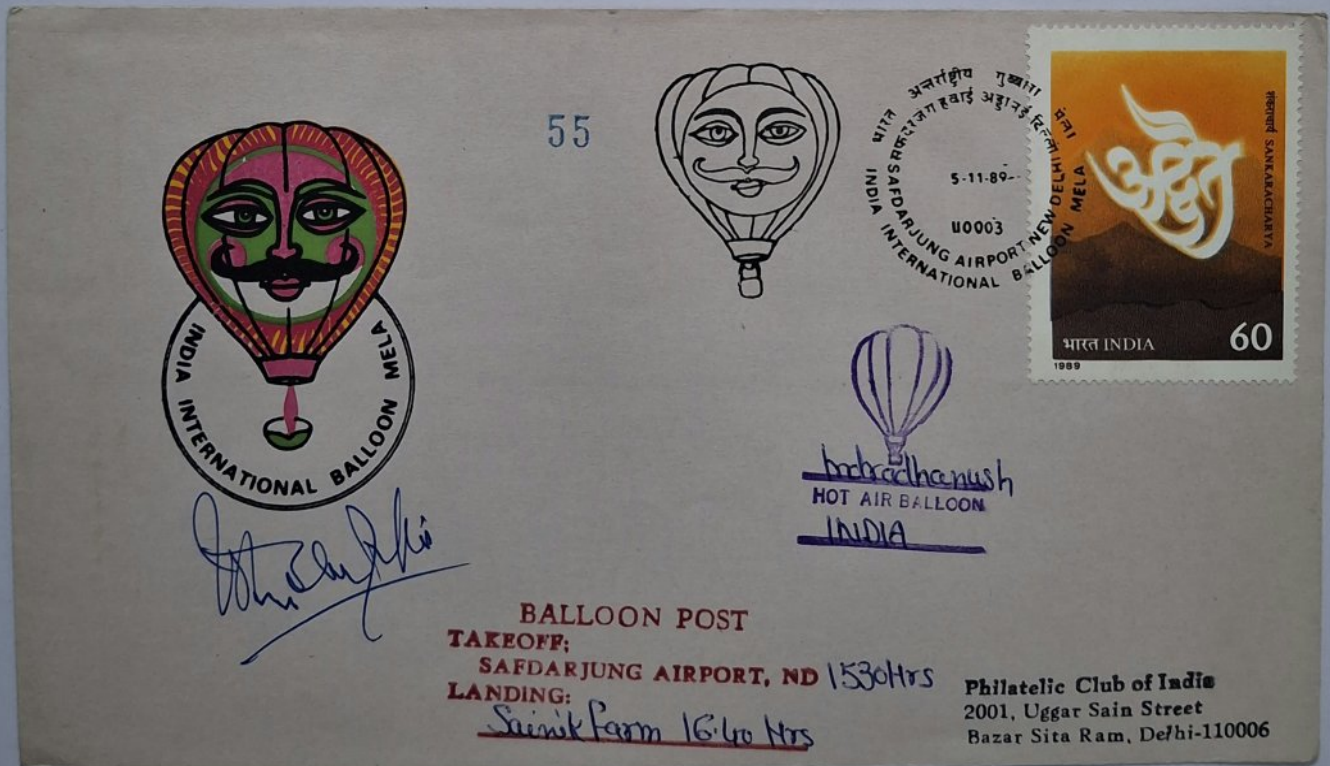 55
भारत अन्तर्राष्ट्रीय गुब्बारा मेला
सफदरजंग हवाई अड्डा नई दिल्ली
5-11-89
U0003
SAFDARJUNG AIRPORT NEW DELHI
INDIA INTERNATIONAL BALLOON MELA
शंकराचार्य SANKARACHARYA
अद्वैत
भारत INDIA 60
1989
INDIA INTERNATIONAL BALLOON MELA
Indradhanush
HOT AIR BALLOON
INDIA
BALLOON POST
TAKEOFF:
SAFDARJUNG AIRPORT, ND 1530Hrs
LANDING:
Sainik Farm 16.40 Hrs
Philatelic Club of India
2001, Uggar Sain Street
Bazar Sita Ram, Delhi-110006